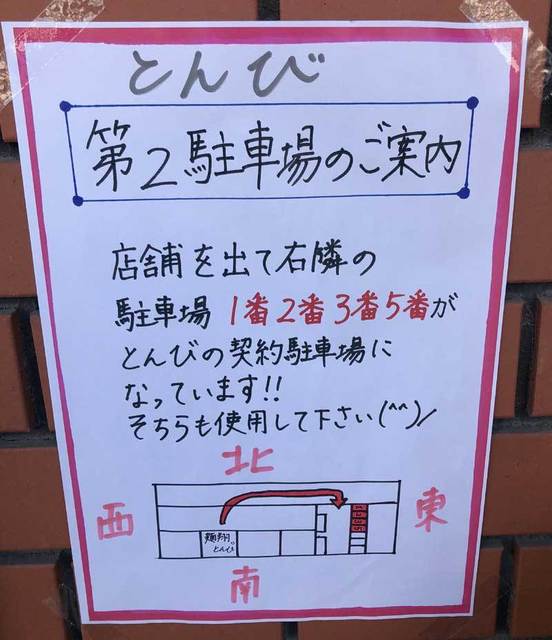 とんび
第2駐車場のご案内
店舗を出て右隣の
駐車場 1番2番3番5番が
とんびの契約駐車場に
なっています!!
そちらも使用して下さい(^^)/
北
西
東
1
2
3
5
とんび
南